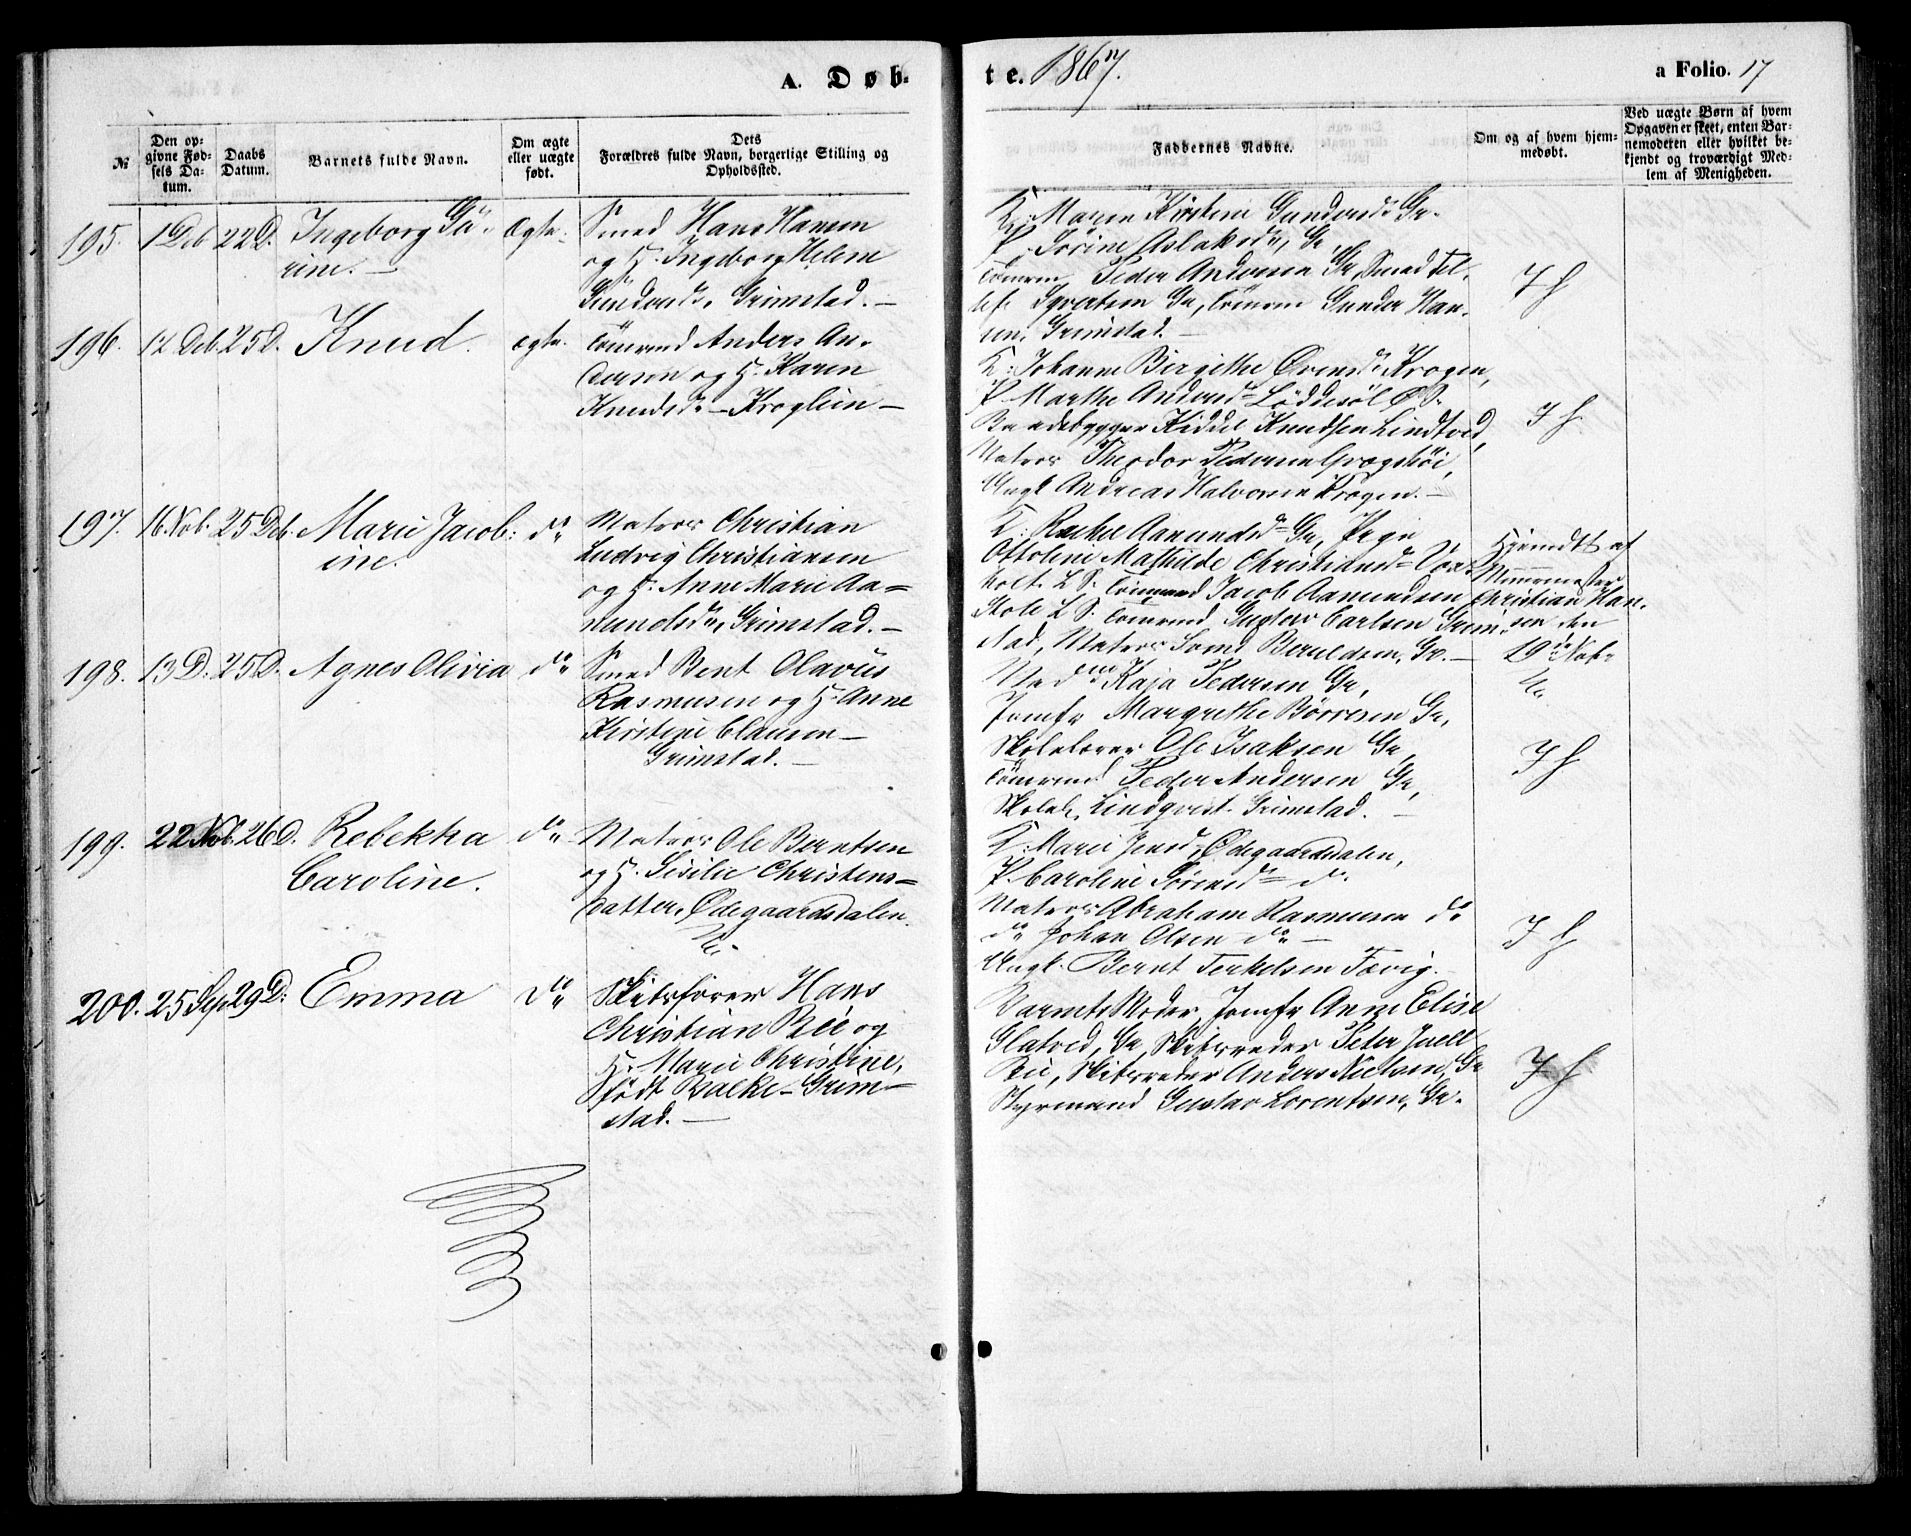 A. Døb-
te. 1867.
a Folio. 17
№
Den opgivne Fødsels Datum.
Daabs Datum.
Barnets fulde Navn.
Om ægte eller uægte født.
Dets Forældres fulde Navn, borgerlige Stilling og Opholdssted.
Faddernes Navne.
Om og af hvem hjemmedøbt.
Ved uægte Børn af hvem Opgaven er skeet, enten Barnemoderen eller hvilket bekjendt og troværdigt Medlem af Menigheden.
195. 1 Deb 22 D. Ingeborg
rine. —
ægte.
Smed Hans Hansen
og H. Ingeborg Helene
Gundersd. Grimstad. —
K. Maren Kirstine Gundersd. Gr.
P. Sørine Aslaksd., Gr.
Tømrm. Peder Andersen Gr, Smed
Gr, Tømrm Gunder Han-
sen, Grimstad. —
I h
196. 12 Deb. 25 D. Knud.
ægte.
Tømrmd Anders An-
dersen og H. Karen
Knudsd. —
K: Johanne Birgithe Krogen,
P. Marthe Andersd. Løddesøl Ø.S.
Kiddel Knudsen Lindtved,
Matros Theodor Pedersen
Ungk Andreas Halvorsen Krogen. —
I h.
197. 16 Nob. 25 Deb. Marie Jacob:
ine.
do
Matros Christian
Ludvig Christiansen
og H. Anne Marie Aa=
munds Dr, Grimstad. —
K: Rachel Aamundsd. Gr, Pige
Ottoline Mathilde Christiansd.
holt. L S. Tømrmd Jacob Aamundsen
L S. Tømrmd Gustav Carlsen Grim-
stad, Matros Gr. —
Hjemdt af
Murmester
Christian Han-
sen den
19de Nob.
198. 13 D. 25 D. Agnes Olivia
do
Smed Bent Olavus
Rasmusen og H. Anne
Kirstine Clausen —
Grimstad. —
Kaja Pedersen Gr,
Jomfr Margrethe Børresen Gr,
Skolelærer Ole Isaksen Gr,
Tømrmd Peder Andersen Gr,
Skolel. Lindqvist. Grimstad. —
I h
199. 22 Nob. 26 D. Rebekka
Caroline.
do
Matros Ole Berntsen
og H. Sisilie Christens=
datter, Ødegaardsdalen.
K: Marie Jensd. Ødegaardsdalen,
P. Caroline Sørensd. do.
Matros Abraham Rasmusen do
do Johan Olsen do —
Ungk. Bernt Terkelsen Fævig. —
I h
200. 25 Sep 29 D: Emma
do
Skibsfører Hans
Christian Bie og
H. Marie Christine,
født Balke — Grim-
stad. —
Barnets Moder, Jomfr Anne Elise
Glatved, Gr, Skibsreder Peter Juell
Bie, Skibsreder Anders Nielsen, Gr
Styrmand Gustav Lorentsen, Gr.
I h